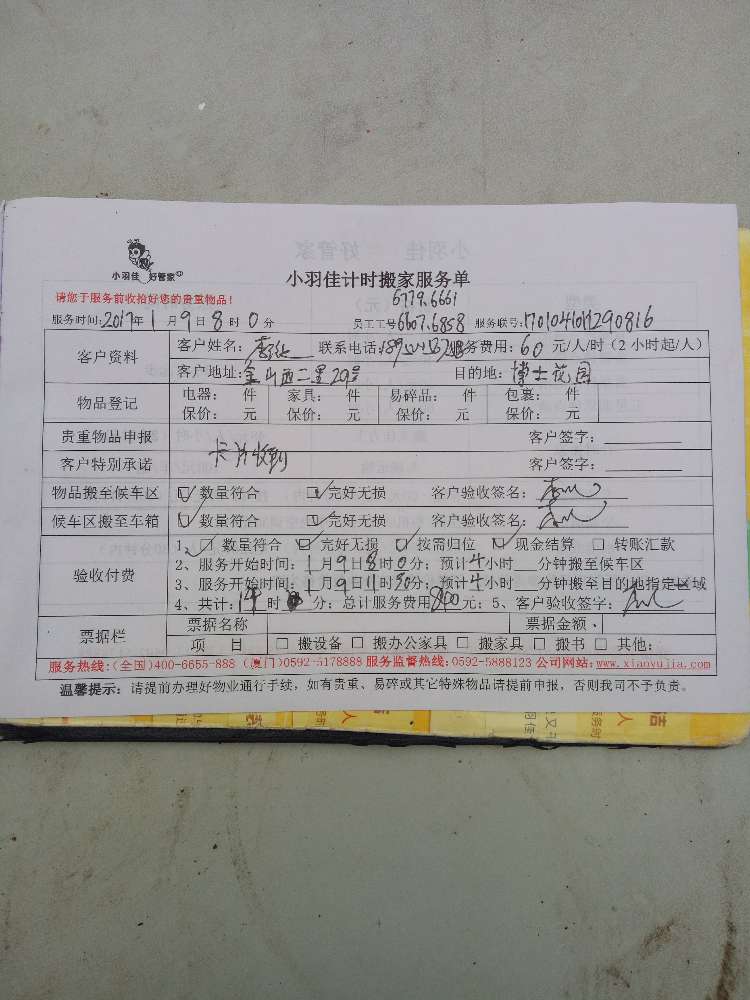 小羽佳 好管家
小羽佳计时搬家服务单
请您于服务前收拾好您的贵重物品！
6779.6661
服务时间:2017年1月9日8时0分 员工工号6607.6858 服务联号:
客户资料
客户姓名: 联系电话: 服务费用: 60 元/人/时（2小时起/人）
客户地址: 金山西二里29号 目的地: 博士花园
物品登记
电器: 件 家具: 件 易碎品: 件 包裹: 件
保价: 元 保价: 元 保价: 元 保价: 元
贵重物品申报 客户签字:
客户特别承诺 卡片收到 客户签字:
物品搬至候车区 数量符合 完好无损 客户验收签名:
候车区搬至车箱 数量符合 完好无损 客户验收签名:
验收付费
1、 数量符合 完好无损 按需归位 现金结算 转账汇款
2、服务开始时间: 1月9日8时0分; 预计4小时 分钟搬至候车区
3、服务开始时间: 1月9日11时30分; 预计4小时 分钟搬至目的地指定区域
4、共计: 14时 分; 总计服务费用840元; 5、客户验收签字:
票据栏
票据名称 票据金额
项 目 搬设备 搬办公家具 搬家具 搬书 其他:
服务热线:(全国)400-6655-888 (厦门)0592-5178888 服务监督热线:0592-5888123 公司网站:www.xiaoyujia.com
温馨提示: 请提前办理好物业通行手续，如有贵重、易碎或其它特殊物品请提前申报，否则我司可不予负责。